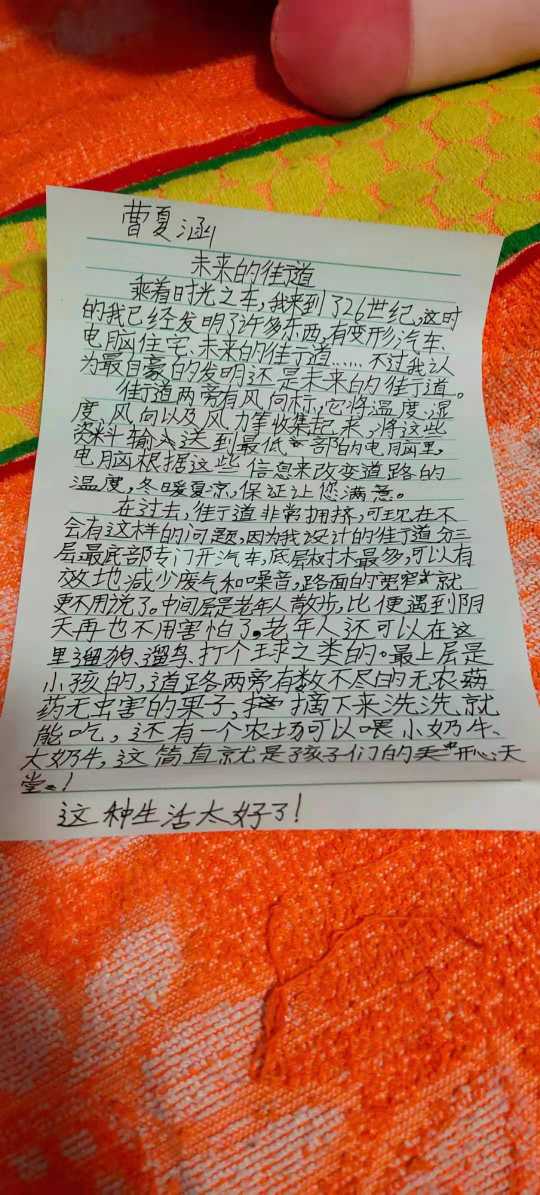 曹夏涵
未来的街道
乘着时光之车,我来到了26世纪,这时
的我已经发明了许多东西,有变形汽车、
电脑住宅、未来的街道……不过我认
为最自豪的发明还是未来的街道。
街道两旁有风向标,它将温度、湿
度、风向以及风力等收集起来,将这些
资料输入送到最低部的电脑里,
电脑根据这些信息来改变道路的
温度,冬暖夏凉,保证让您满意。
在过去,街道非常拥挤,可现在不
会有这样的问题,因为我设计的街道分三
层,最底部专门开汽车,底层树木最多,可以有
效地减少废气和噪音,路面的宽窄就
更不用说了。中间层是老年人散步,比便遇到阴
天再也不用害怕了。老年人还可以在这
里遛狗、遛鸟、打个球之类的。最上层是
小孩的,道路两旁有数不尽的无农
药无虫害的果子,摘下来洗洗就
能吃,还有一个农场可以喂小奶牛、
大奶牛,这简直就是孩子们的开心天
堂。!
这种生活太好了!